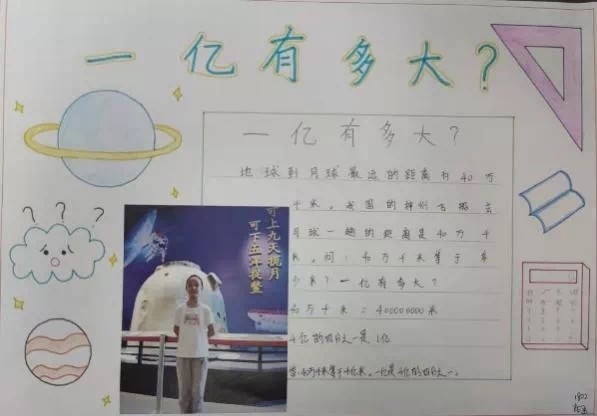 一亿有多大?
一亿有多大?
地球到月球最远的距离有40万
千米。我国的神州飞船去
月球一趟的距离是40万千
米。问:40万千米等于多
少米?一亿有多大?
40万千米=400000000米
4亿的四分之一是1亿
答:40万千米等于4亿米。一亿是4亿的四分之一。
可上九天揽月
可下五洋捉鳖
? ? ?